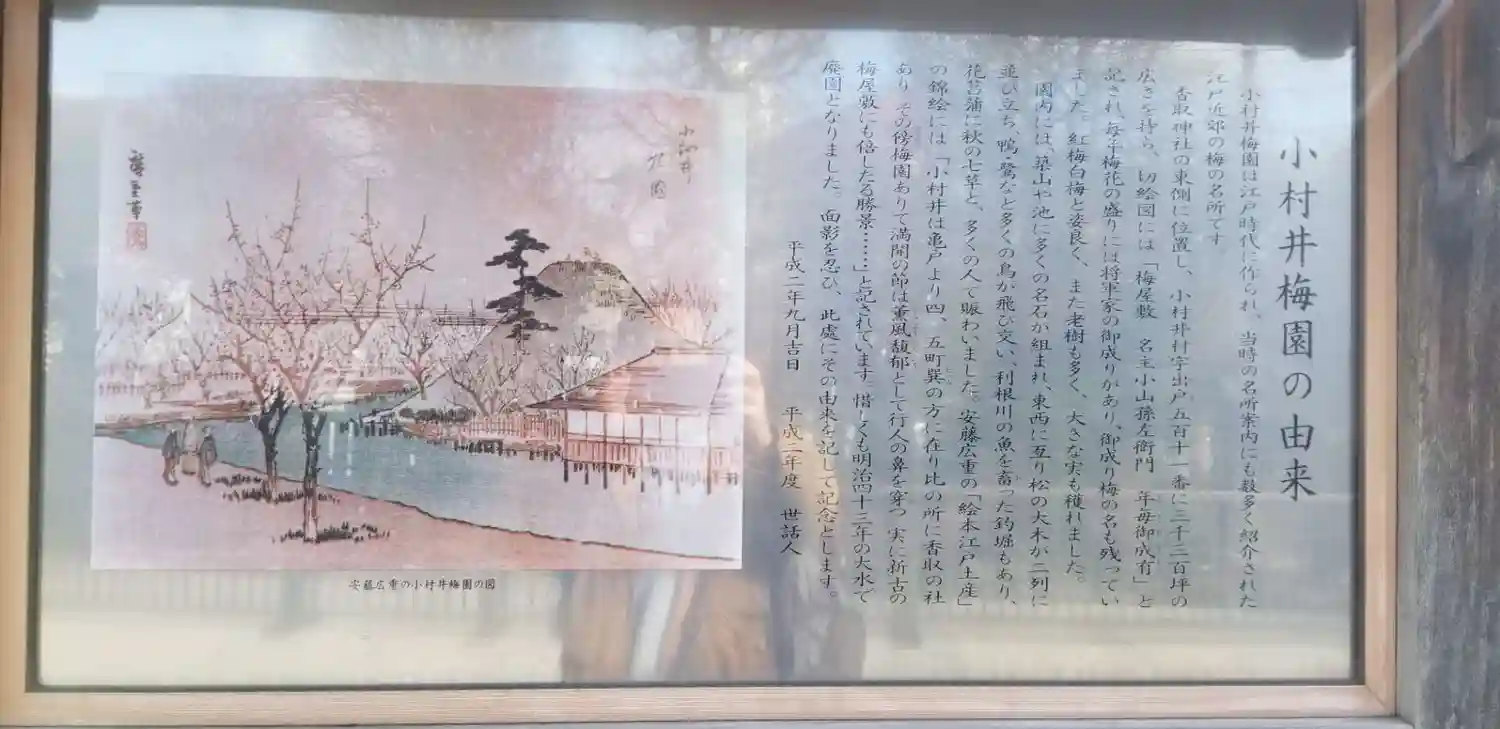 小村井梅園の由来
小村井梅園は江戸時代に作られ、当時の名所案内にも数多く紹介された
江戸近郊の梅の名所です
香取神社の東側に位置し、小村井村字出戸五百十一番に三千三百坪の
広さを持ち、切絵図には「梅屋敷 名主小山孫左衛門 年毎御成有」と
記され、毎年梅花の盛りには将軍家の御成りがあり、御成り梅の名も残ってい
ました。紅梅白梅と姿良く、また老樹も多く、大きな実も穫れました。
園内には、築山や池に多くの名石が組まれ、東西に亙り松の大木が二列に
並び立ち、鴨・鷺など多くの鳥が飛び交い、利根川の魚を畜った釣堀もあり、
花菖蒲に秋の七草と、多くの人で賑わいました。安藤広重の「絵本江戸土産」
の錦絵には「小村井は亀戸より四、五町巽の方に在り比の所に香取の社
あり その傍梅園ありて満開の節は薫風馥郁として行人の鼻を穿つ 実に新古の
梅屋敷にも倍したる勝景……」と記されています。惜しくも明治四十三年の大水で
廃園となりました。面影を忍び、此處にその由来を記して記念とします。
平成二年九月吉日 平成二年度 世話人
小村井
梅園
廣重筆
安藤広重の小村井梅園の図